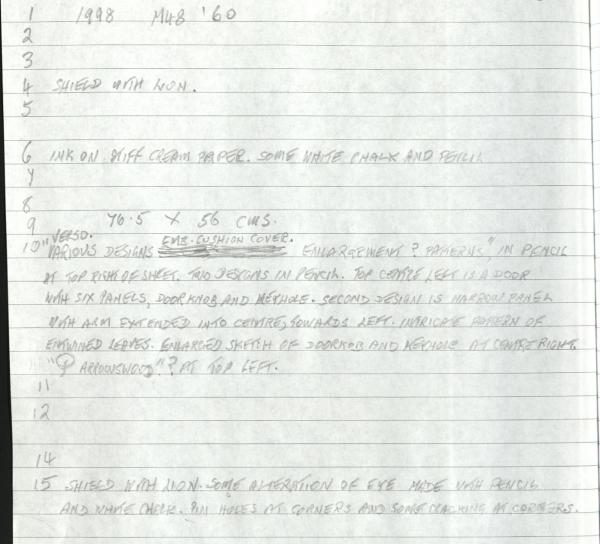 1 1998 M48 '60
2
3
4 SHIELD WITH LION.
5
6 INK ON STIFF CREAM PAPER. SOME WHITE CHALK AND PENCIL
7
8
9 76.5 X 56 CMS.
VERSO. EMB. CUSHION COVER.
10 "VARIOUS DESIGNS ENLARGEMENT? PATTERNS" IN PENCIL
AT TOP RIGHT OF SHEET. TWO DESIGNS IN PENCIL. TOP CENTRE LEFT IS A DOOR
WITH SIX PANELS, DOORKNOB AND KEYHOLE. SECOND DESIGN IS NARROW PANEL
WITH ARM EXTENDED INTO CENTRE, TOWARDS LEFT. INTRICATE PATTERN OF
ENTWINED LEAVES. ENLARGED SKETCH OF DOORKNOB AND KEYHOLE AT CENTRE RIGHT.
"P ARROWSWOOD"? AT TOP LEFT.
11
12
14
15 SHIELD WITH LION. SOME ALTERATION OF EYE MADE WITH PENCIL
AND WHITE CHALK. PIN HOLES AT CORNERS AND SOME CRACKING AT CORNERS.